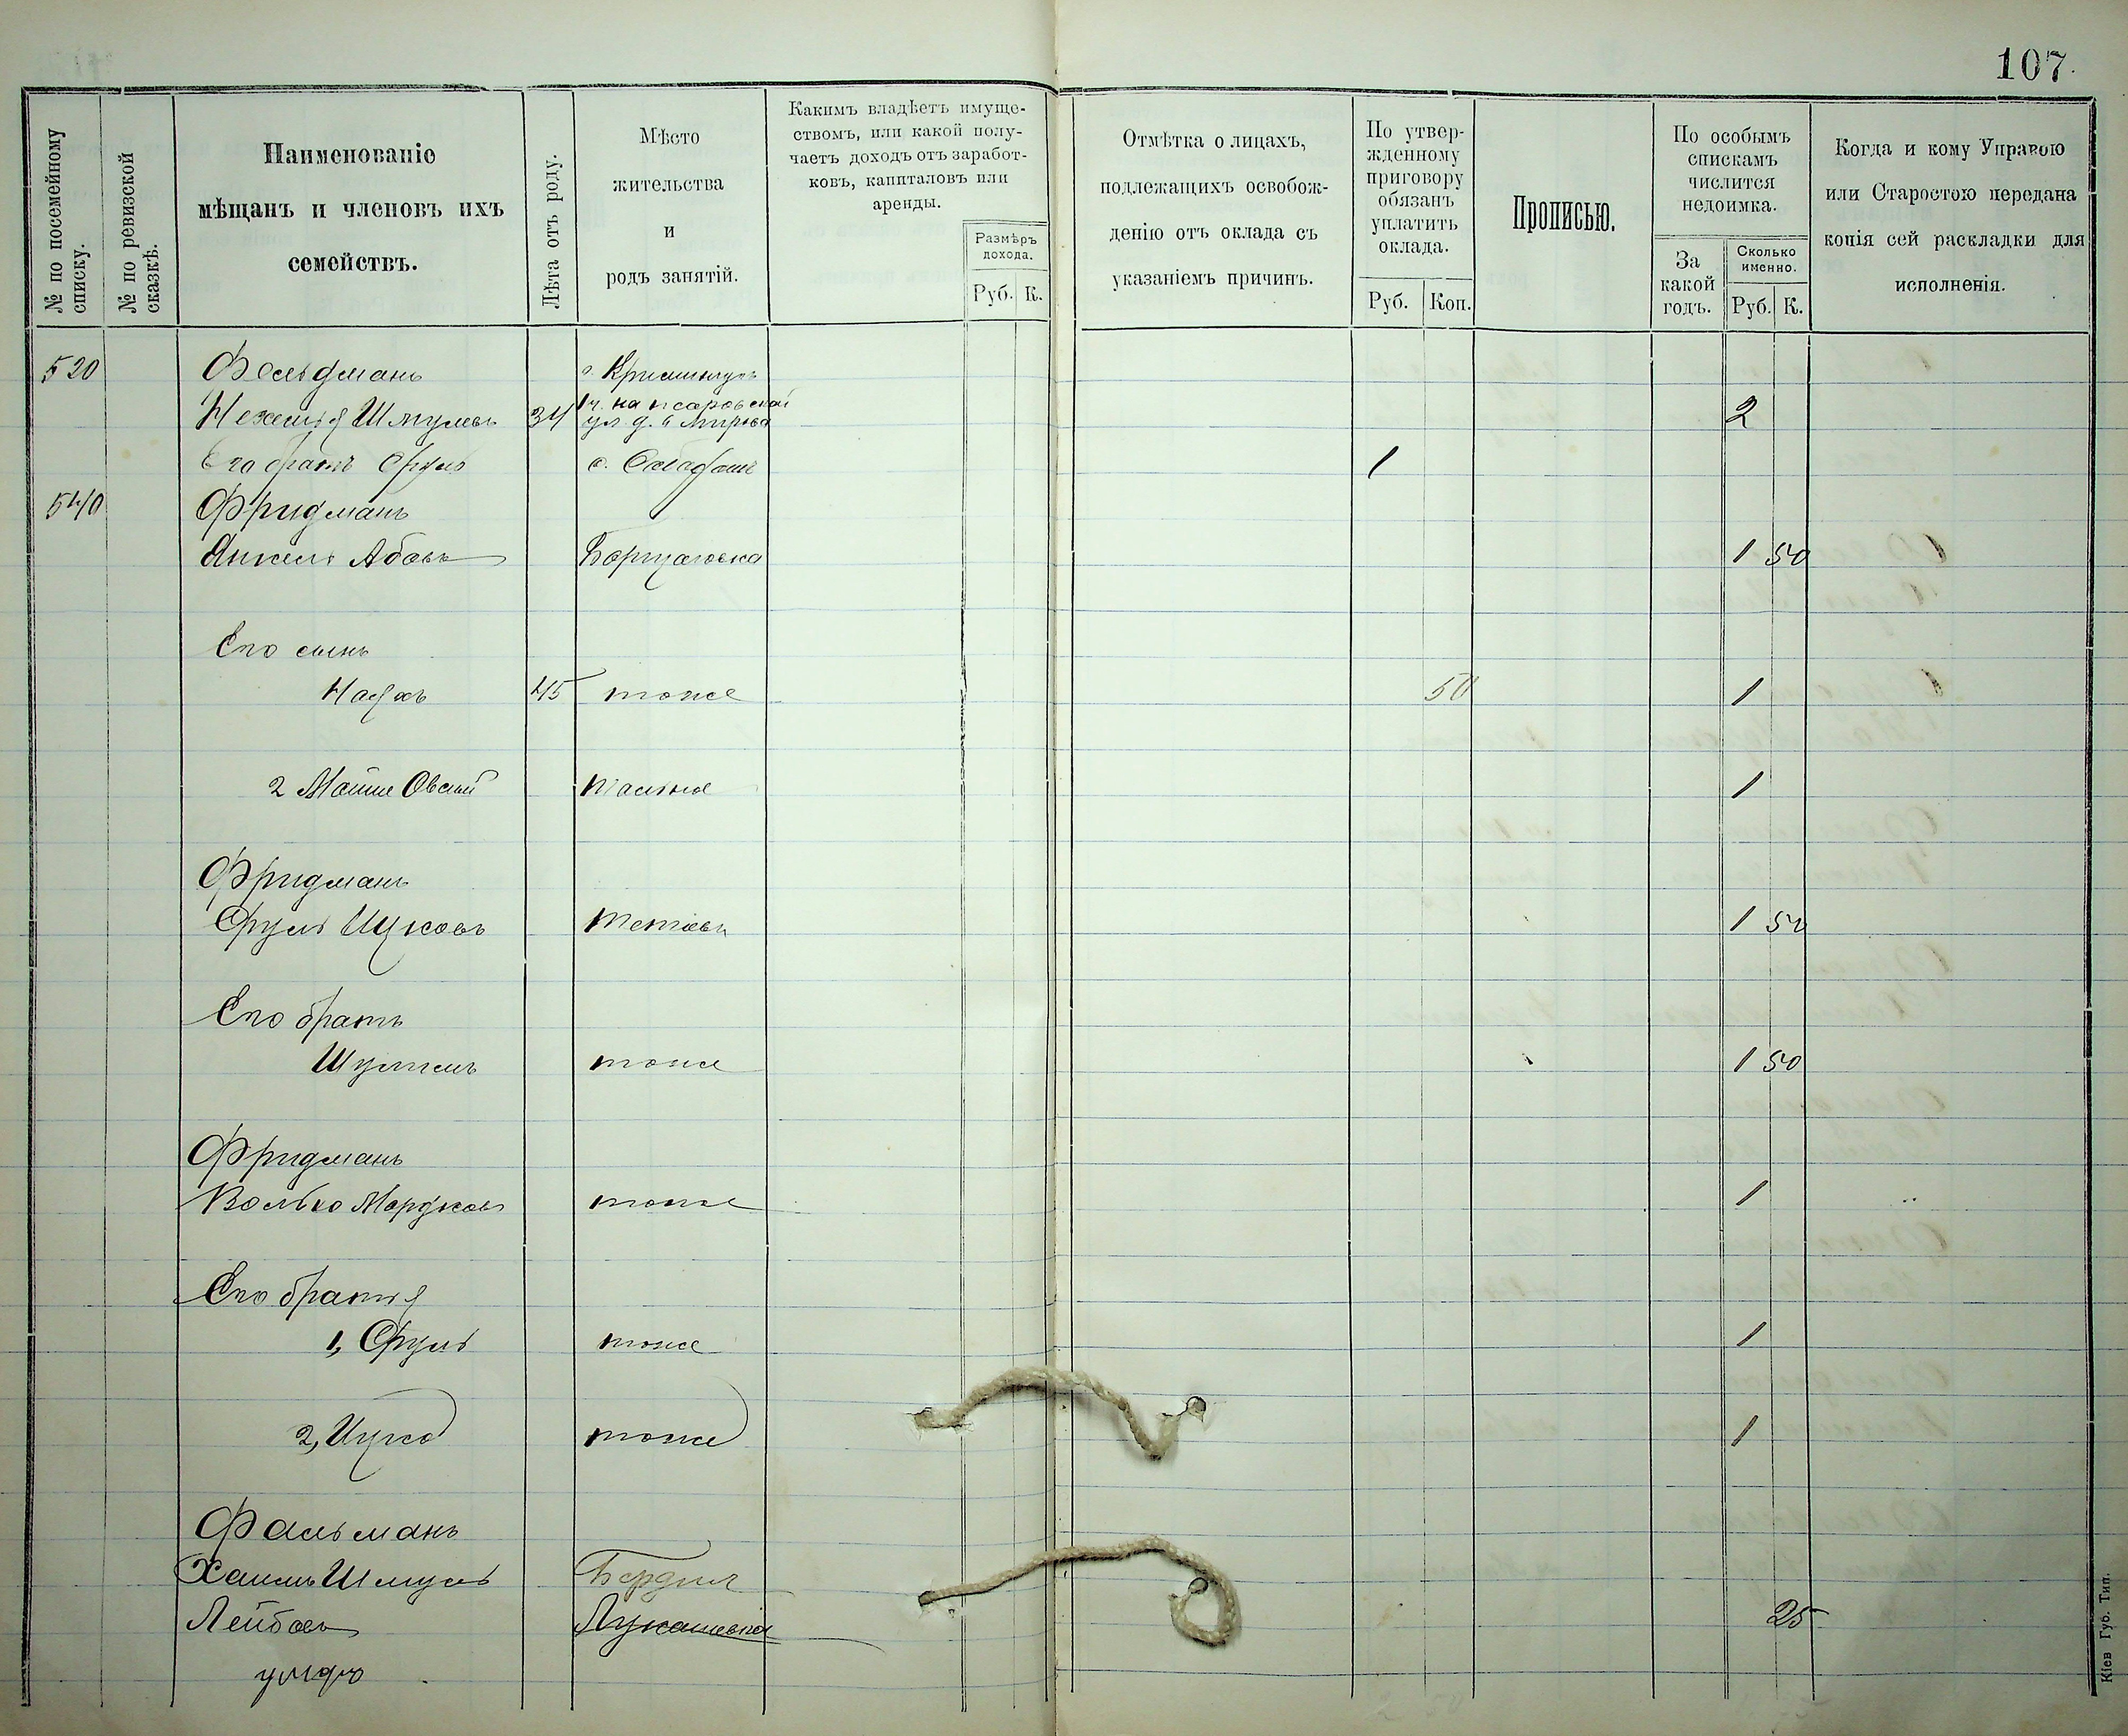 107.
№ по посемейному списку.
№ по ревизской сказкѣ.
Наименованіе
мѣщанъ и членовъ ихъ
семействъ.
Лѣта отъ роду.
Мѣсто
жительства
и
родъ занятій.
Какимъ владѣетъ имуще-
ствомъ, или какой полу-
чаетъ доходъ отъ заработ-
ковъ, капиталовъ или
аренды.
Размѣръ
дохода.
Руб. К.
Отмѣтка о лицахъ,
подлежащихъ освобож-
денію отъ оклада съ
указаніемъ причинъ.
По утвер-
жденному
приговору
обязанъ
уплатить
оклада.
Руб. Коп.
Прописью.
По особымъ
спискамъ
числится
недоимка.
За
какой
годъ.
Сколько
именно.
Руб. К.
Когда и кому Управою
или Старостою передана
копія сей раскладки для
исполненія.
520 Фельдманъ
Нехемія Шмулевъ 34 ул. д. 2
Его братъ Сруль с. 1
540 Фридманъ
Янкель Абовъ 1 50
Его сынъ
45 тоже 50 1
2 Мойше Овсей Тальное 1
Фридманъ
Сруль Ицковъ Тетіевъ 1 50
Его братъ
тоже 1 50
Фридманъ
Волько Мордковъ тоже 1
Его братья
1, Сруль тоже 1
2, Ицко тоже 1
Фальманъ
Хаимъ Шмуль Бердич
Лейбовъ Лукашевка 25
умеръ
Кіев Губ. Тип.